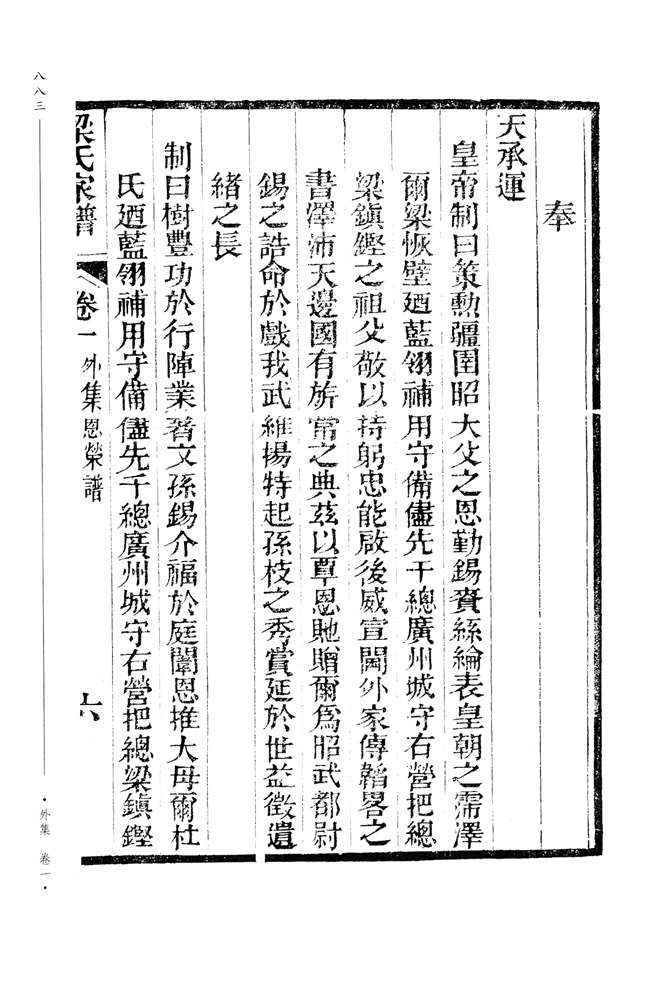 奉
天承運
皇帝制曰策勲疆圉昭大父之恩勤錫賚絲綸表皇朝之濡澤
爾梁恢壁廼藍翎補用守備儘先千總廣州城守右營把總
梁鎮鏗之祖父敬以持躬忠能啟後威宣閫外家傳韜畧之
書澤沛天邊國有旂常之典茲以覃恩貤贈爾爲昭武都尉
錫之誥命於戲我武維揚特起孫枝之秀賞延於世益徵遺
緒之長
制曰樹豐功於行陣業著文孫錫介福於庭闈恩推大母爾杜
氏廼藍翎補用守備儘先千總廣州城守右營把總梁鎮鏗
梁氏家譜 卷一 外集恩榮譜 六
八八三
•外集 卷一•